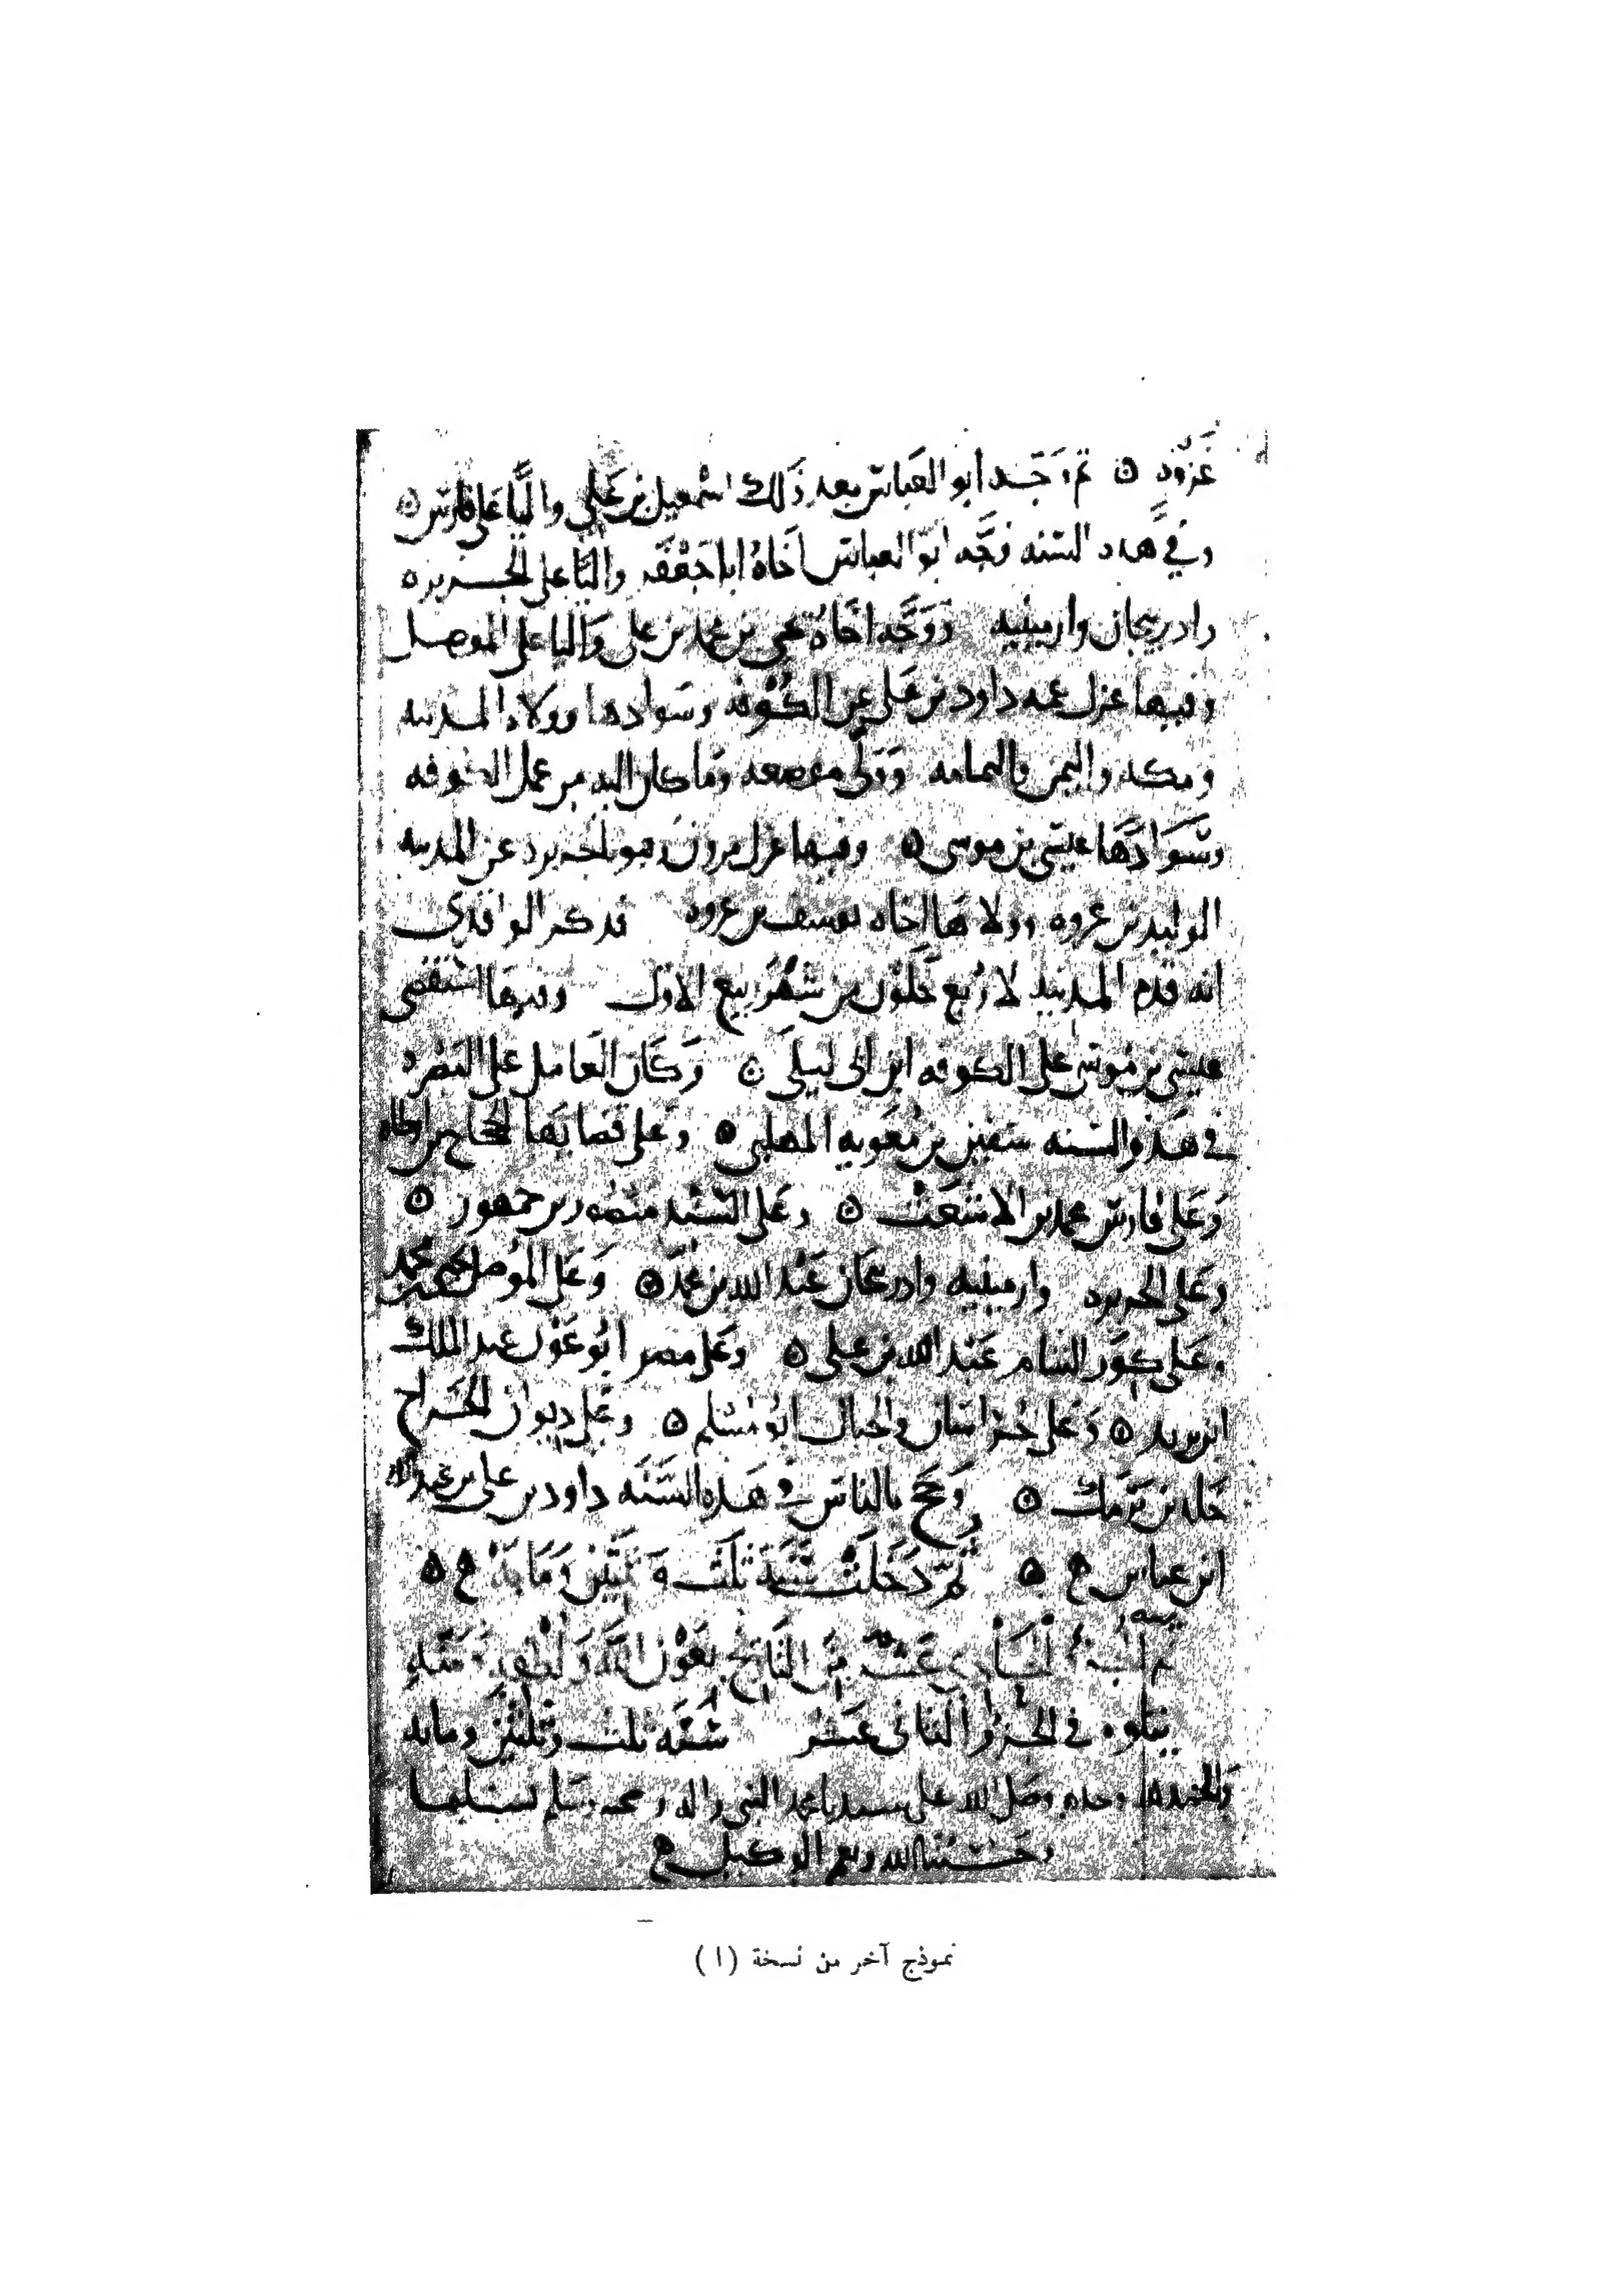 عزوه ۞ ثم وجه ابو العباس بعد ذلك اسمعيل بن علي واليا على فارس ۞
وفي هده السنه وجه ابو العباس اخاه ابا جعفر واليا على الجزيره
وادربيجان وارمينيه ووجه اخاه يحيى بن محمد بن علي واليا على الموصل
وفيها عزل عمه داود بن علي عن الكوفه وسوادها وولاه المدينه
ومكه واليمن واليمامه وولى موضعه وما كان اليه من عمل الكوفه
وسوادها عيسى بن موسى ۞ وفيها عزل مرون وهو بالجزيره عن المدينه
الوليد بن عروه وولاها اخاه يوسف بن عروه فذكر الواقدي
انه قدم المدينه لاربع خلون من شهر ربيع الاول وفيها استقضى
عيسى بن موسى على الكوفه ابن ابي ليلى ۞ وكان العامل على البصره
في هذه السنه سفين بن معويه المهلبي ۞ وعلى قضايها الحجاج بن ارطاه
وعلى فارس محمد بن الاشعث ۞ وعلى السند منصور بن جمهور ۞
وعلى الجزيره وارمينيه وادربيجان عبد الله بن محمد ۞ وعلى الموصل يحيى بن محمد
وعلى كور الشام عبد الله بن علي ۞ وعلى مصر ابو عون عبد الملك
ابن يزيد ۞ وعلى خراسان والجبال ابو مسلم ۞ وعلى ديوان الخراج
خالد بن برمك ۞ وحج بالناس في هذه السنه داود بن علي بن عبد الله
ابن عباس ۞ ثم دخلت سنة ثلث وثلثين ومايه ۞
تم الجزء الحادي عشر من التاريخ بعون الله ولطفه
يتلوه في الجزو الثاني عشر سنه ثلث وثلثين ومايه
والحمد لله وحده وصلى الله على سيدنا محمد النبي واله وصحبه وسلم تسليما
وحسبنا الله ونعم الوكيل
نموذج آخر من نسخة (١)